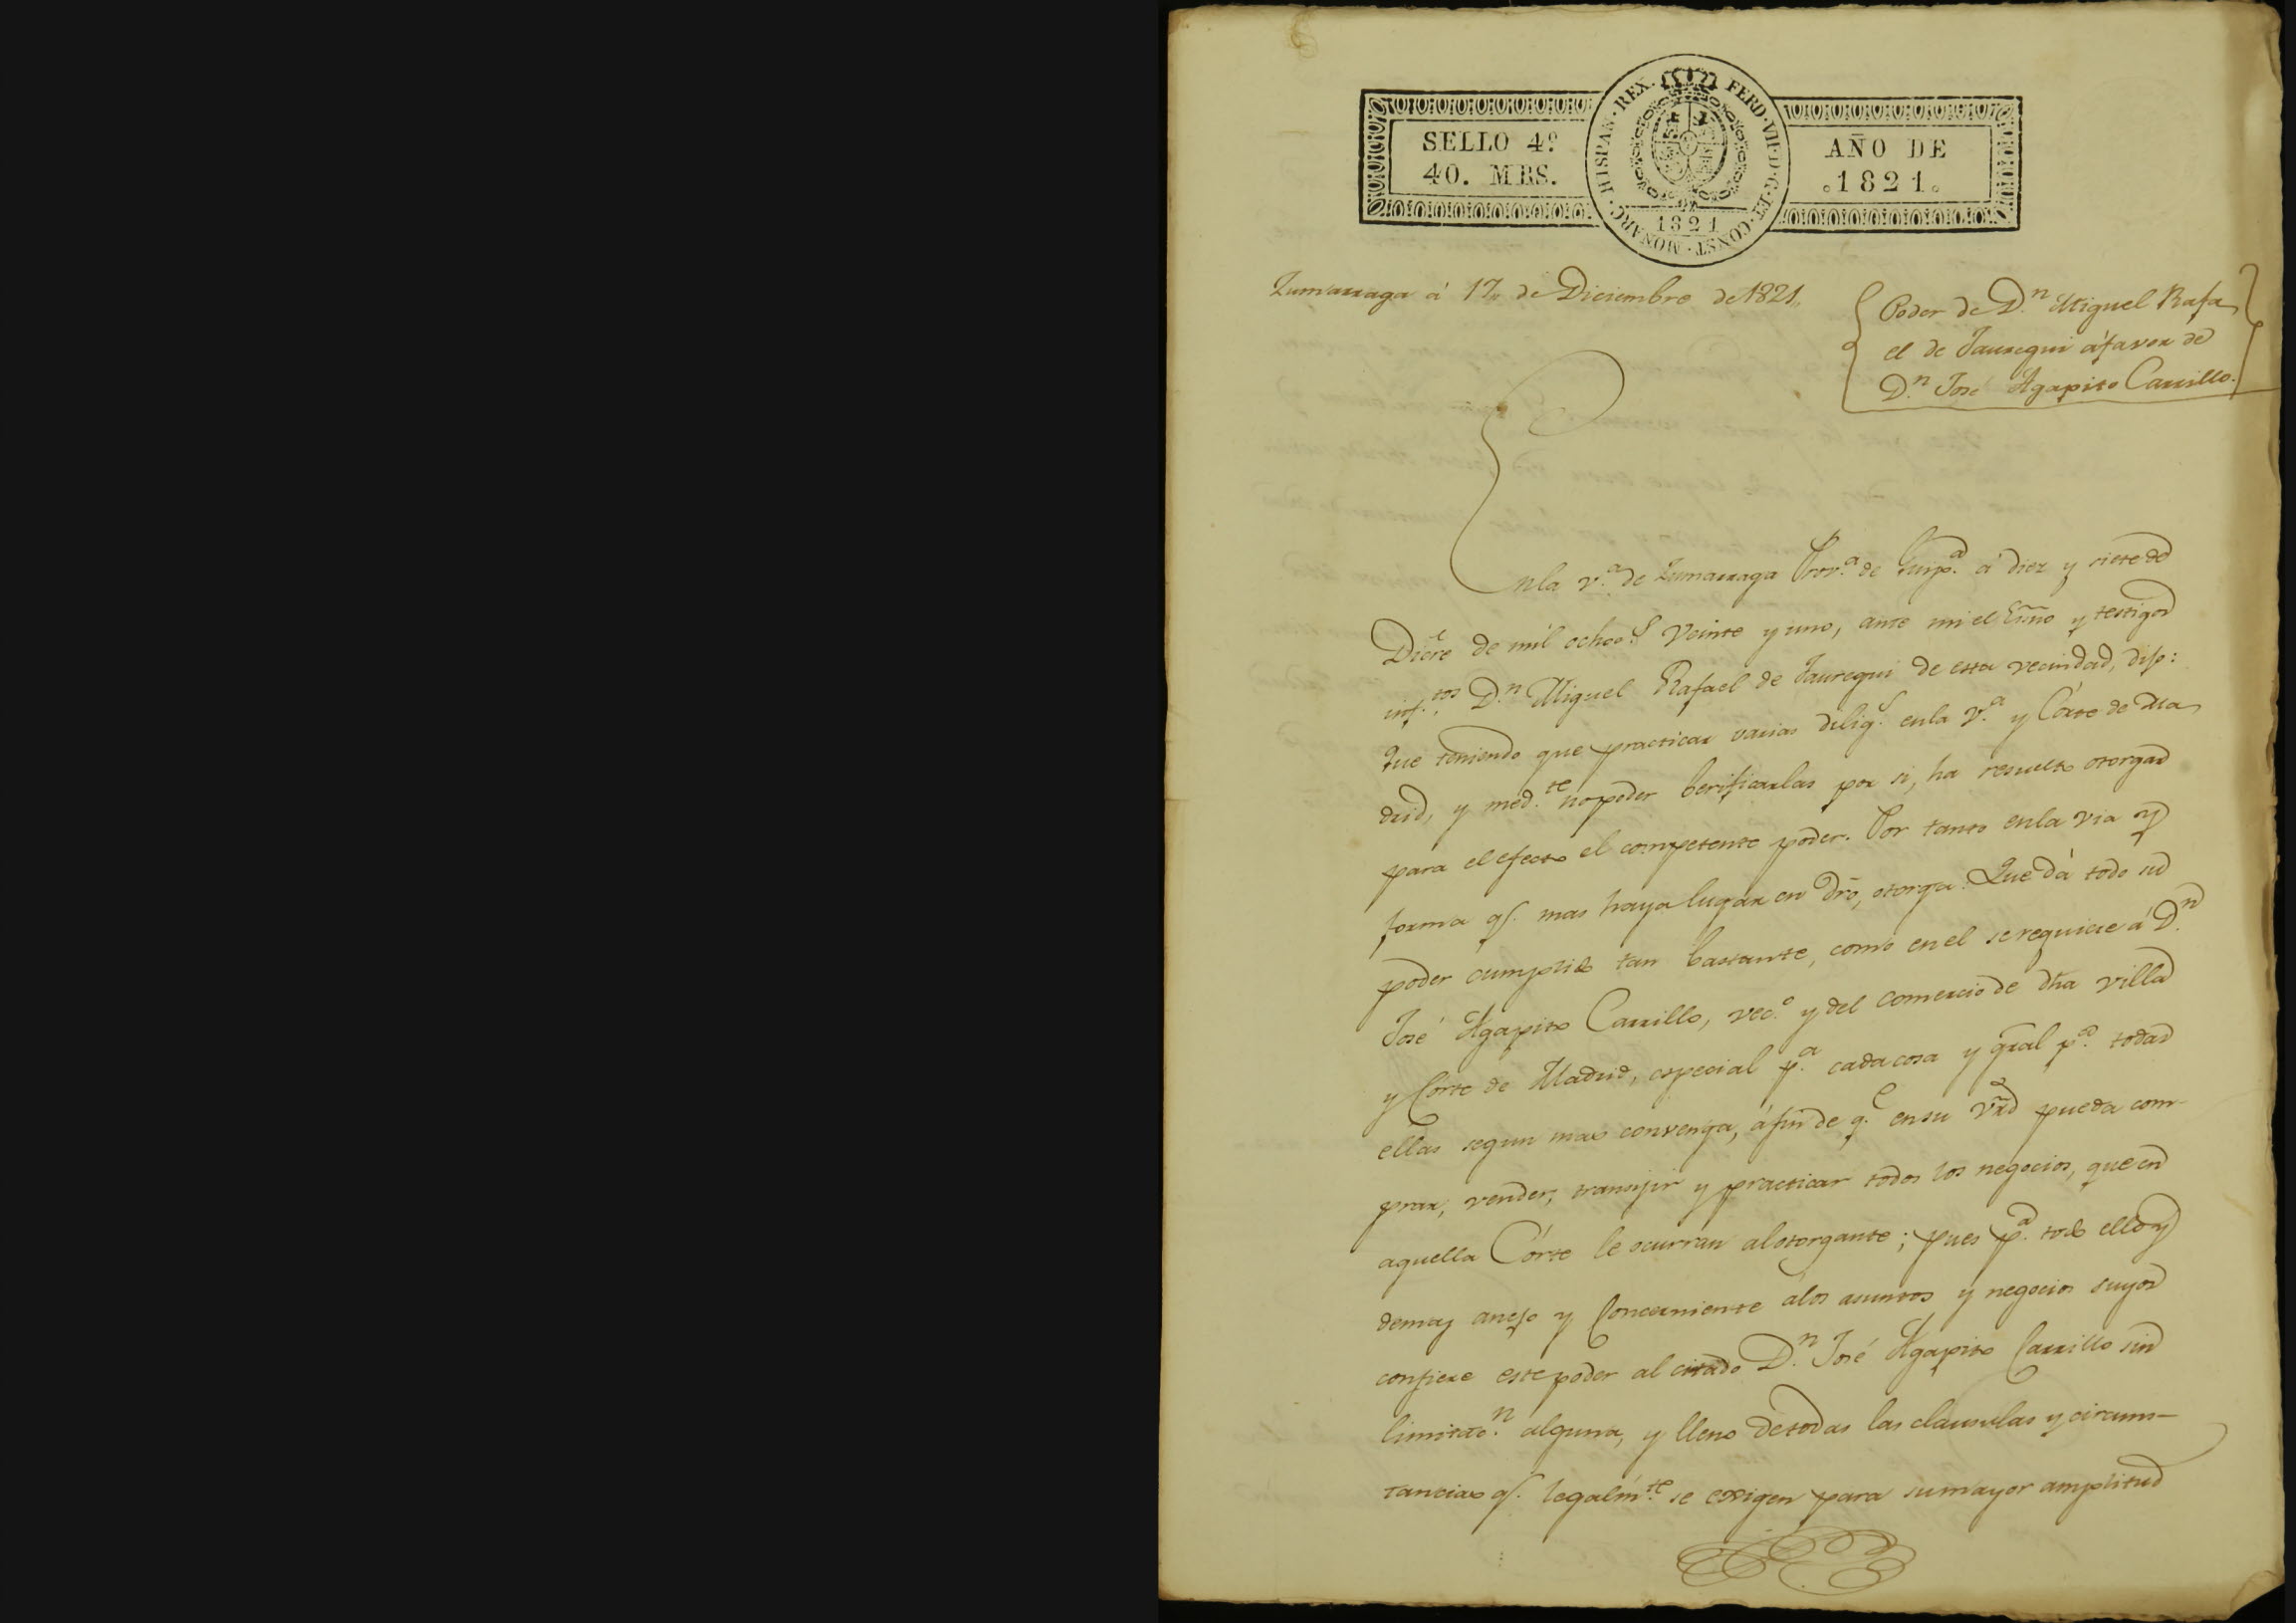 SELLO 4º
40. MRS.
HISPAN·REX· FERD·VII·D·G·ET·CONST·MONARC·
1821
AÑO DE
1821.
Zumarraga á 17,, de Diciembre de 1821,,
Poder de D.n Miguel Rafa
el de Jauregui á favor de
D.n José Agapito Carrillo.
En la v.a de Zumarraga Prov.a de Guip.a á diez y siete de
Dicre de mil ochocs. Veinte y uno, ante mi el Esno y testigos
inf.tos D.n Miguel Rafael de Jauregui de esta vecindad, dijo:
Que teniendo que practicar varias diligs. en la V.a y Córte de Ma
drid, y med.te no poder berificarlas por si, ha resuelto otorgar
para el efecto el competente poder. Por tanto en la via y
forma q.e mas haya lugar en dro, otorga: Que dá todo su
poder cumplido tan bastante, como en el se requiere á D.n
José Agapito Carrillo, vec.o y del comercio de dha villa
y Córte de Madrid, especial p.a cada cosa y gral p.a todas
ellas segun mas convenga, á fin de q.e en su vrd pueda com-
prar, vender, transijir y practicar todos los negocios, que en
aquella Córte le ocurran al otorgante; pues p.a todo ello y
demas anejo y Concerniente á los asuntos y negocios suyos
confiere este poder al citado D.n José Agapito Carrillo sin
limitac.n alguna, y lleno de todas las clausulas y circuns-
tancias q.e legalm.te se exigen para su mayor amplitud